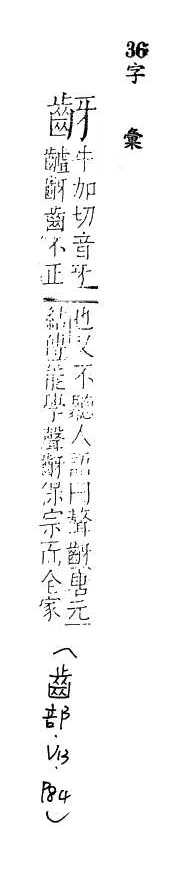 36字 彙
齖
牛加切音牙
䶥齖齒不正
也又不聽人語曰聱齖唐元
結傳能學聱齖保宗而全家
(齒部.V13.P84)